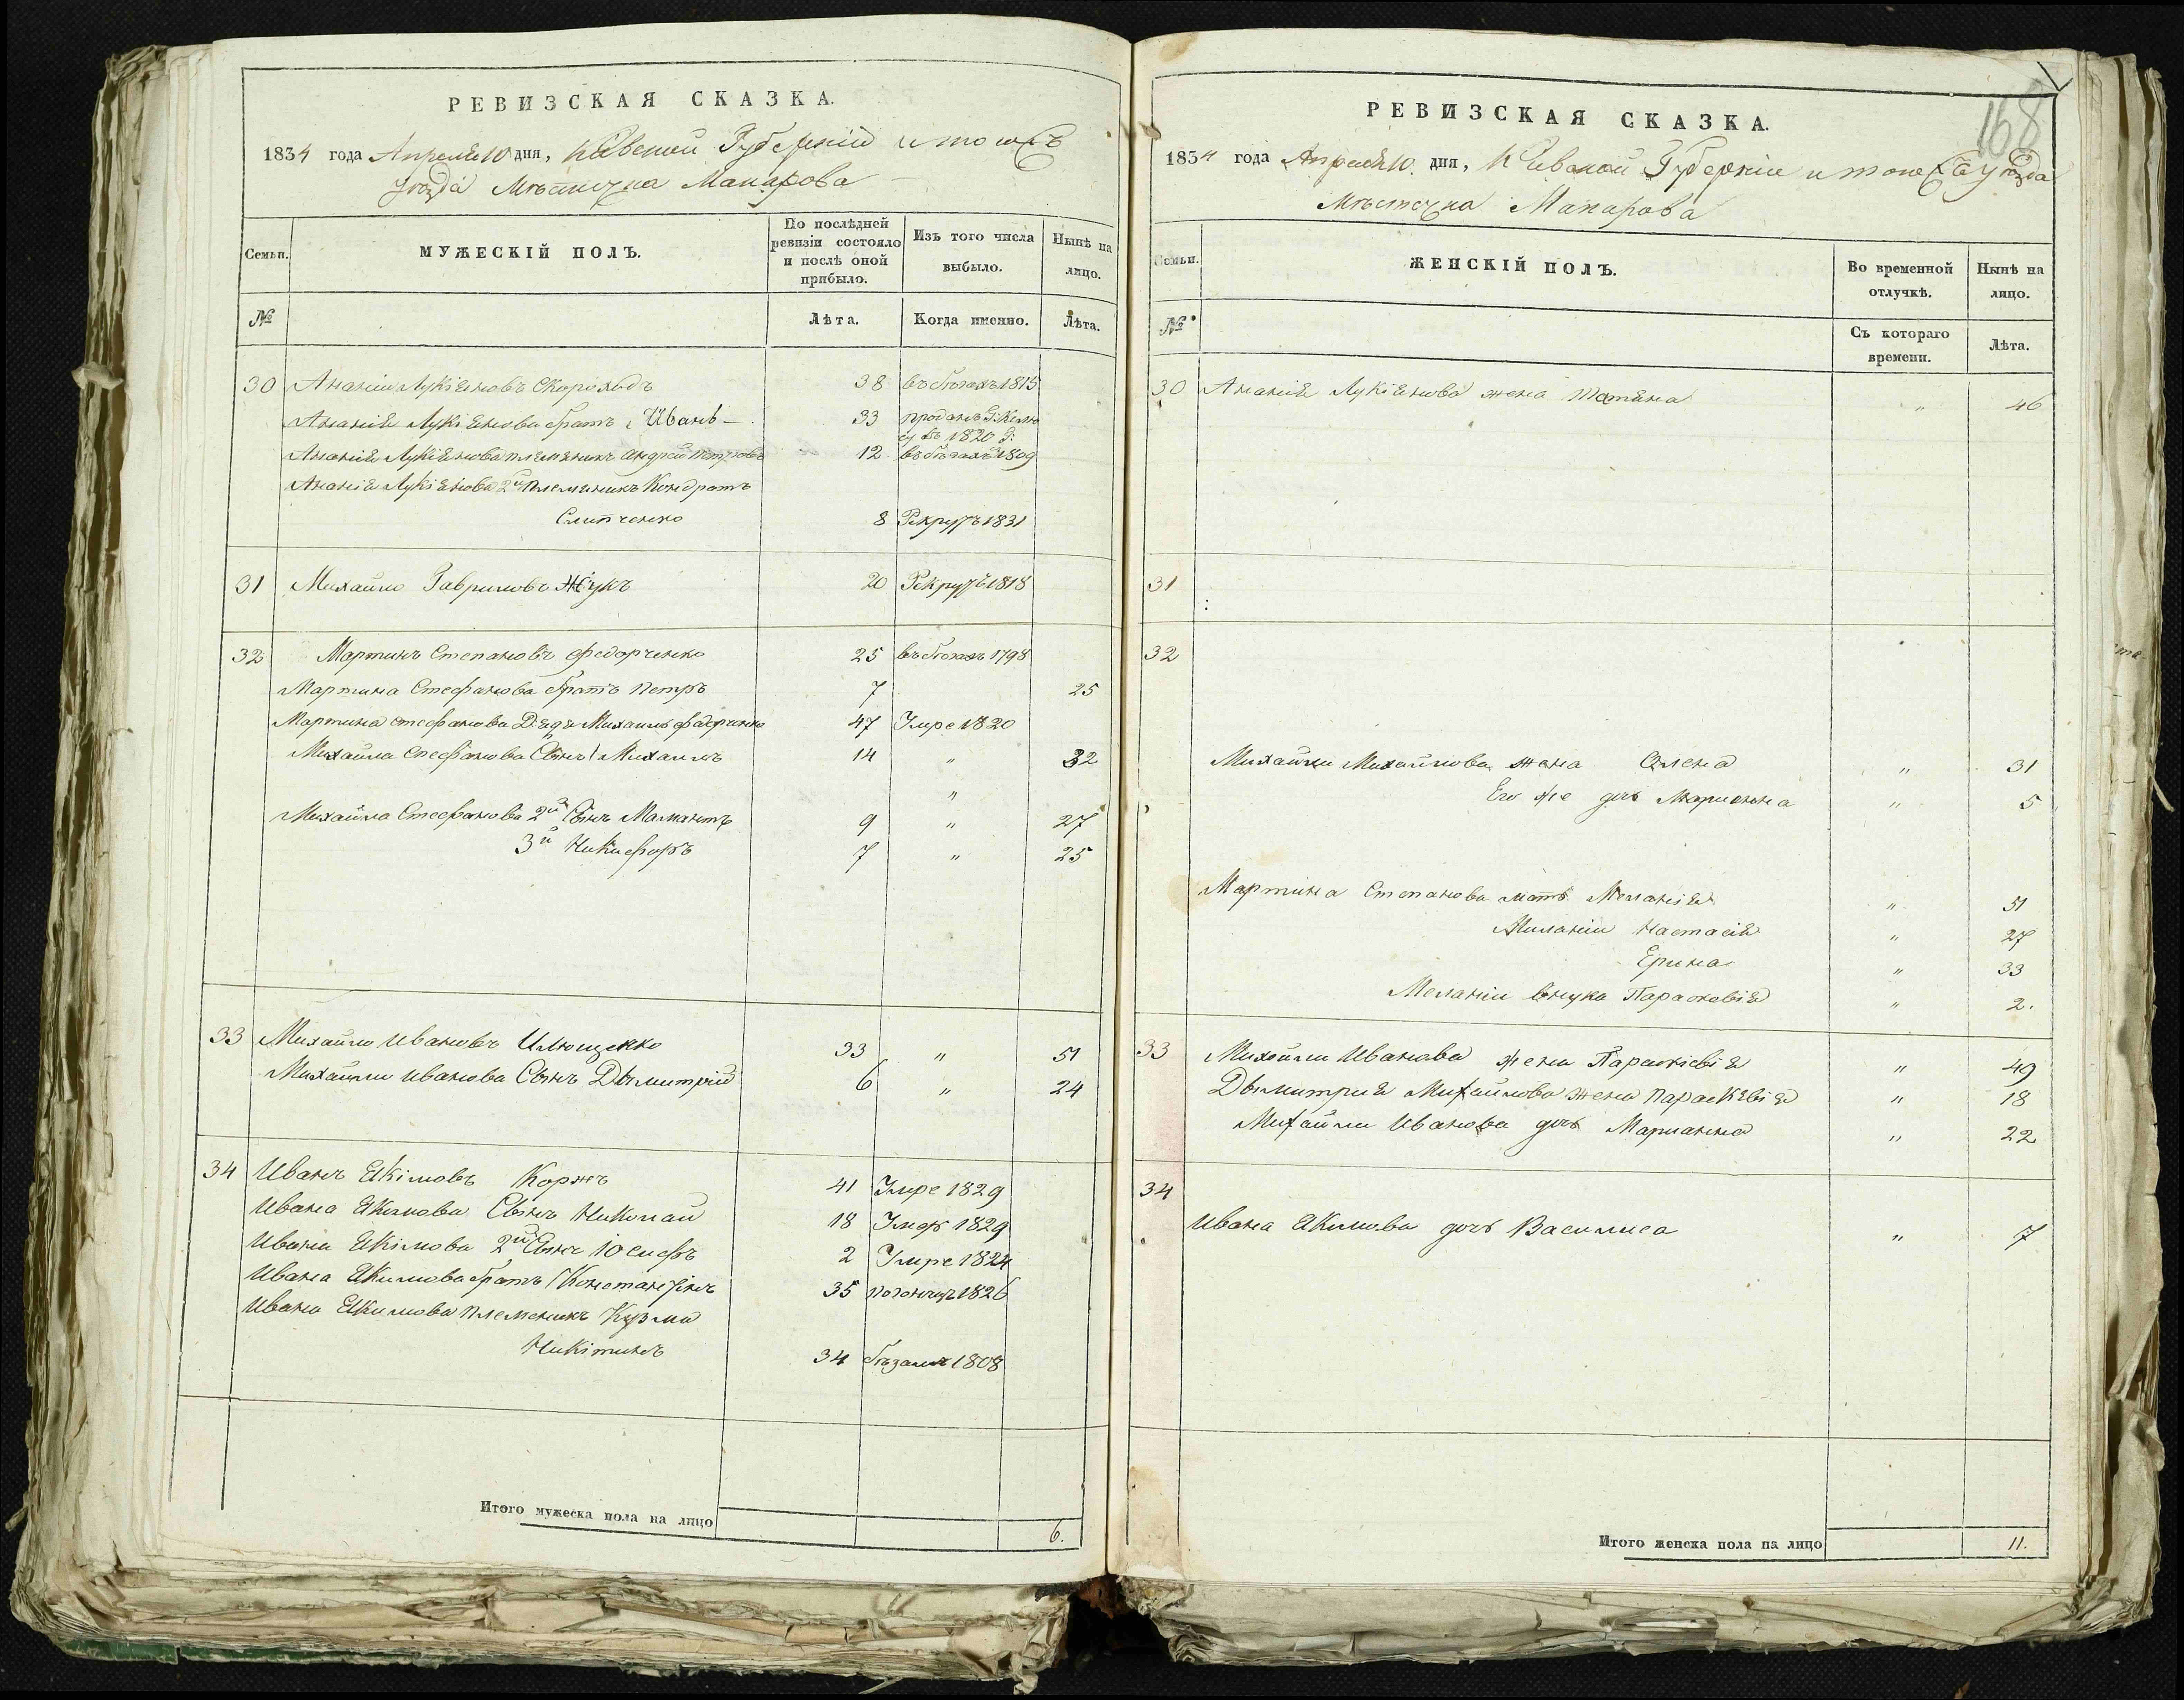 РЕВИЗСКАЯ СКАЗКА.
1834 года Апреля 10 дня, Киевской Губерніи и тогожъ
уѣзда Мѣстечка Макарова
Семьи.
МУЖЕСКІЙ ПОЛЪ.
По послѣдней ревизіи состояло и послѣ оной прибыло.
Изъ того числа выбыло.
Нынѣ на лицо.
№
Лѣта.
Когда именно.
Лѣта.
30 Ананій Лукіяновъ Скороходъ 38 въ бѣгахъ 1815
Ананія Лукіянова братъ Иванъ 33 проданъ Г:
въ 1820 г:
Ананія Лукіянова племяникъ Андрей Петровъ 12 въ бѣгахъ 1809
Ананія Лукіянова 2й племяникъ Кондратъ
Слипченко 8 Рекрутъ 1831
31 Михайло Гавриловъ Жукъ 20 Рекрутъ 1818
32 Мартинъ Степановъ Федорченко 25 въ бѣгахъ 1798
Мартина Стефанова братъ Петръ 7 25
Мартина Стефанова Дядя Михаилъ Федорченко 47 Умре 1820
Михайла Стефанова Сынъ 1 Михаилъ 14 " 32
"
Михайла Стефанова 2й Сынъ Мамантъ 9 " 27
3й Никифоръ 7 " 25
33 Михайло Ивановъ Илющенко 33 " 51
Михайли Иванова Сынъ Дымитрій 6 " 24
34 Иванъ Якімовъ Коржъ 41 Умре 1829
Ивана Якимова Сынъ Николай 18 Умре 1829
Ивана Якімова 2й Сынъ Іосифъ 2 Умре 1824
Ивана Якимова братъ Константинъ 35 1826
Ивана Якимова племеникъ Кузма
Никітинъ 34 бѣжалъ 1808
Итого мужеска пола на лицо 6.
168
РЕВИЗСКАЯ СКАЗКА.
1834 года Апреля 10. дня, Киевской Губерніи и тогожъ уѣзда
Мѣстечка Макарова
Семьи.
ЖЕНСКІЙ ПОЛЪ.
Во временной отлучкѣ.
Нынѣ на лицо.
№
Съ котораго времени.
Лѣта.
30 Ананія Лукіянова жена Татіяна " 46
31
32
Михайли Михайлова жена Олена " 31
Его же дочь Марианна " 5
Мартина Степанова мать Меланія " 51
Миланіи Настасія " 27
Ерина " 33
Меланіи внука Парасковія " 2.
33 Михайли Иванова жена Параскіевія " 49
Дымитрия Михайлова жена Параскевія " 18
Михайли Иванова дочь Марианна " 22
34
Ивана Якимова дочь Василиса " 7
Итого женска пола на лицо 11.